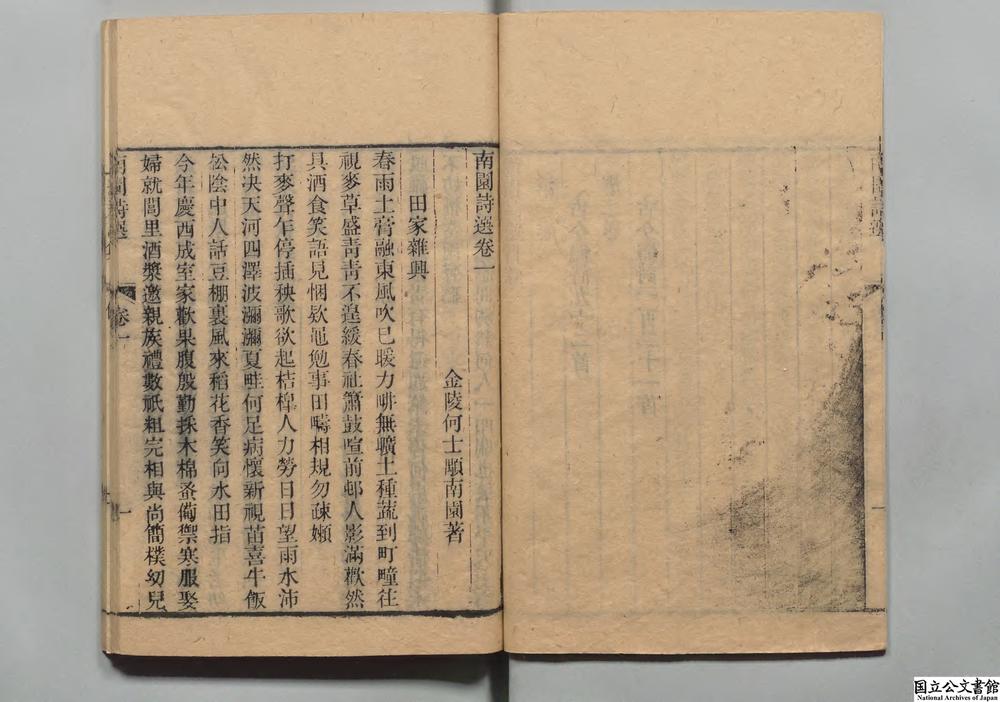 南園詩選卷一
金陵何士顒南園著
田家雜興
春雨土膏融東風吹已暖力耕無曠土種蔬到町疃往
視麥草盛青青不遑緩春社簫鼓喧前邨人影滿歡然
具酒食笑語見悃欵黽勉事田疇相規勿疎嬾
打麥聲乍停插秧歌欲起桔橰人力勞日日望雨水沛
然决天河四澤波瀰瀰夏畦何足病懷新視苗喜牛飯
松陰中人話豆棚裏風來稻花香笑向水田指
今年慶西成室家歡果腹殷勤採木棉蚤備禦寒服娶
婦就閭里酒漿邀親族禮數祇粗完相與尚簡樸幼兒
南園詩選
卷一
一
国立公文書館
National Archives of Japan